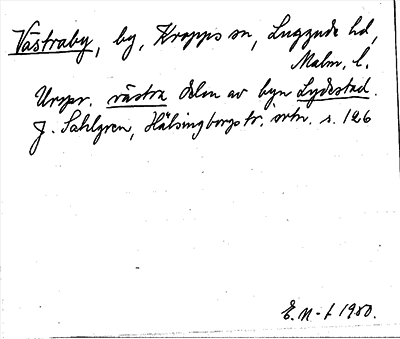 Västraby, by, Kropps sn, Luggude hd,
Malm. l.
Urspr. västra delen av byn Lydestad.
J. Sahlgren, Hälsingborgstr. ortn. s. 126
E. N-t 1980.